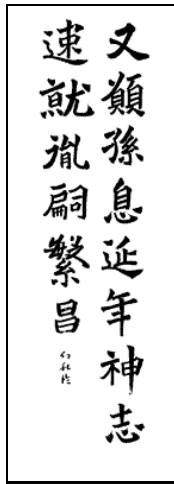 又願孫息延年神志
速就胤嗣繁昌